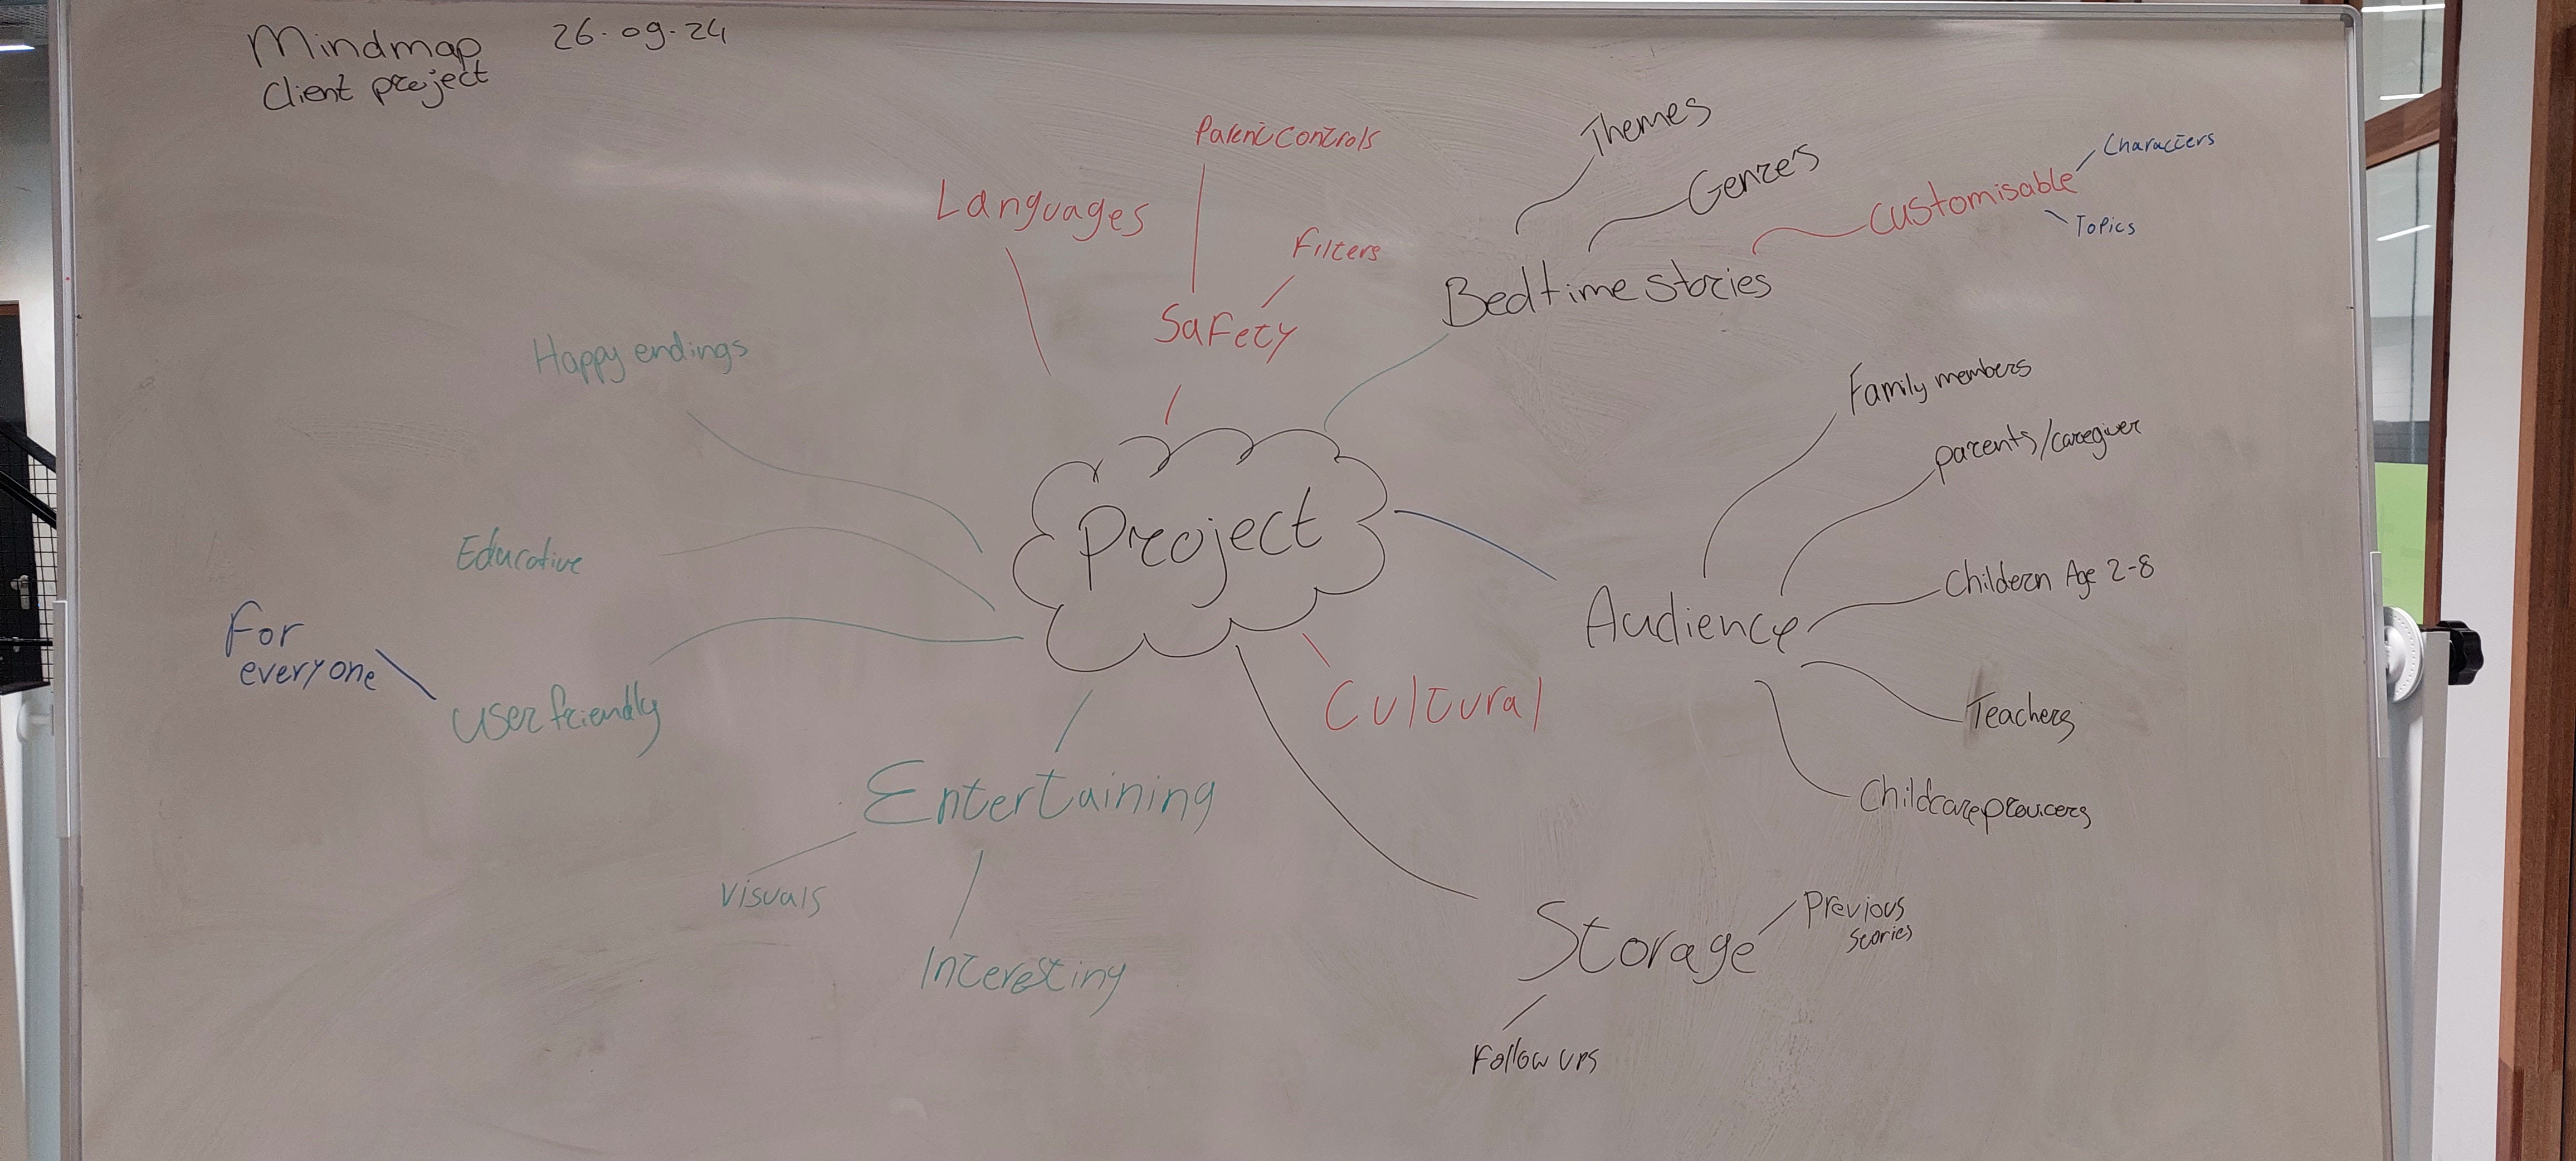 Mindmap 26-09-24
Client project
Parent controls
Themes
Characters
Genres
Customisable
Languages
Topics
Filters
Bedtime stories
Safety
Happy endings
Family members
parents/caregiver
Project
Educative
Childern Age 2-8
For
everyone
Audience
User friendly
Cultural
Teachers
Entertaining
Childcare
Visuals
Previous
stories
Storage
Interesting
Follow ups